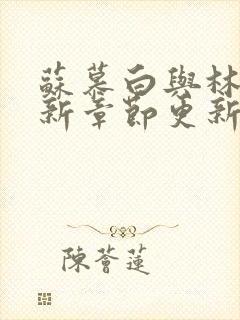 蘇慕白與林
新章節更新
陳薈蓮